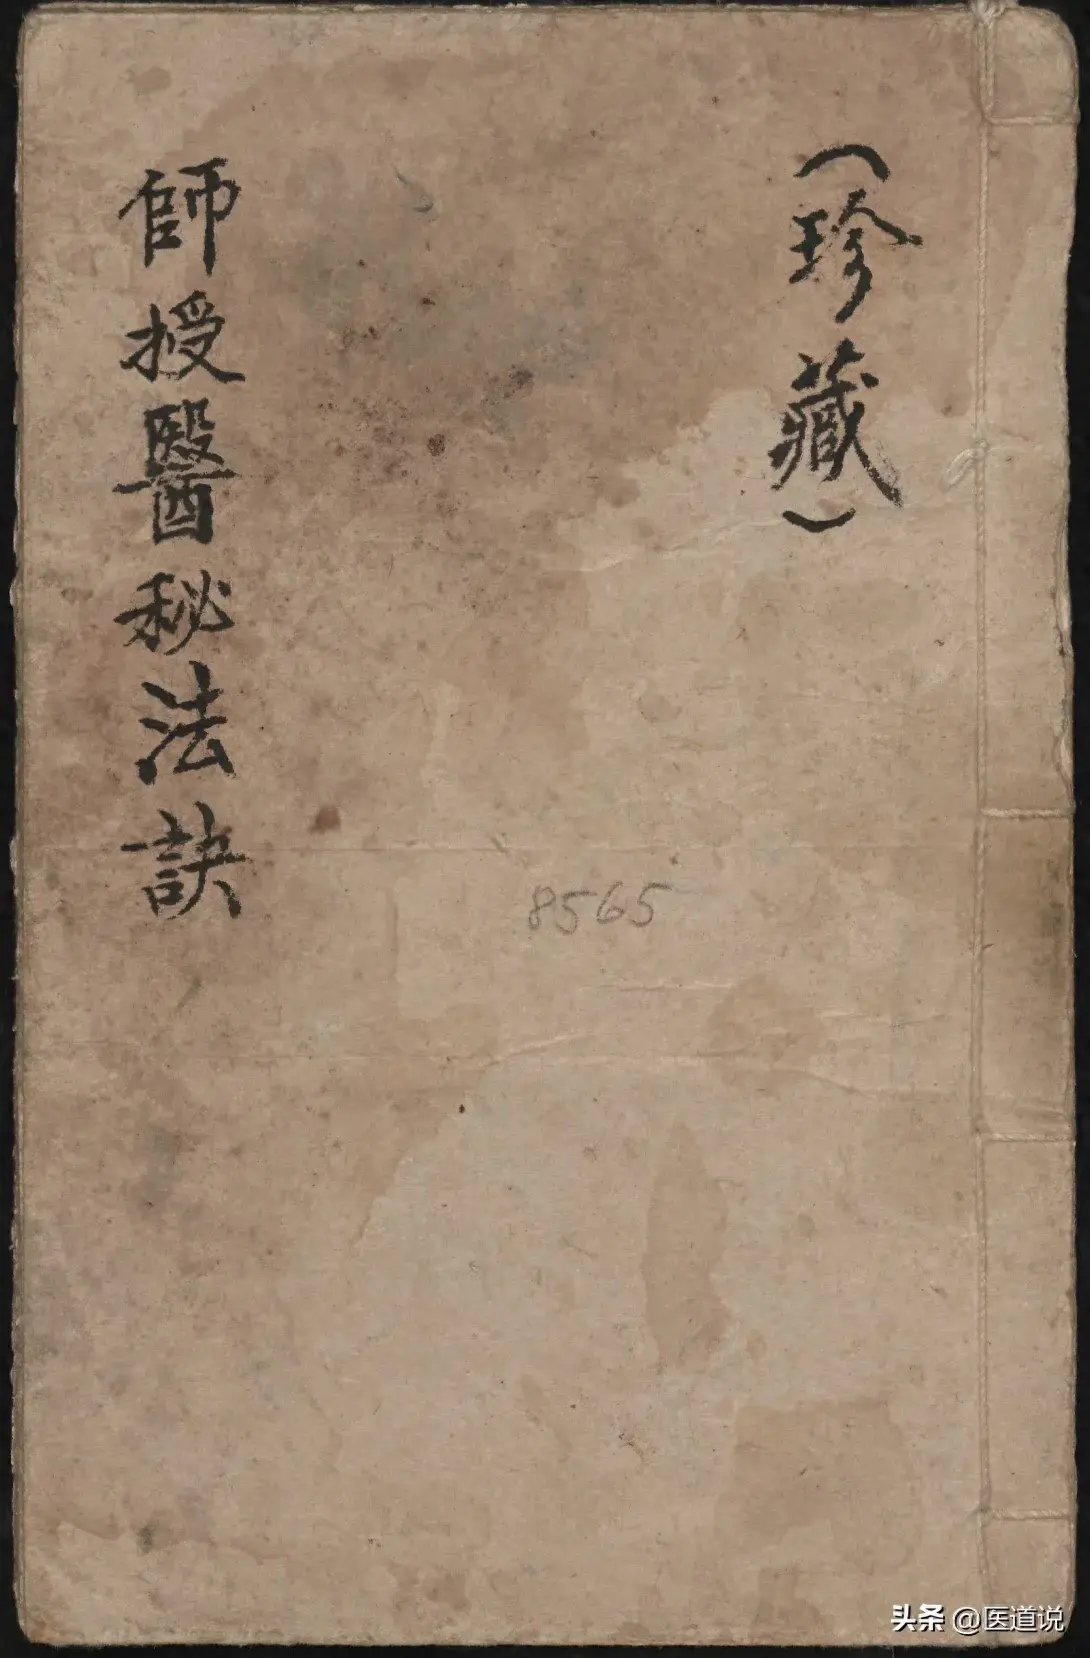 （珍藏）
師授醫秘法訣
8565
头条 @医道说